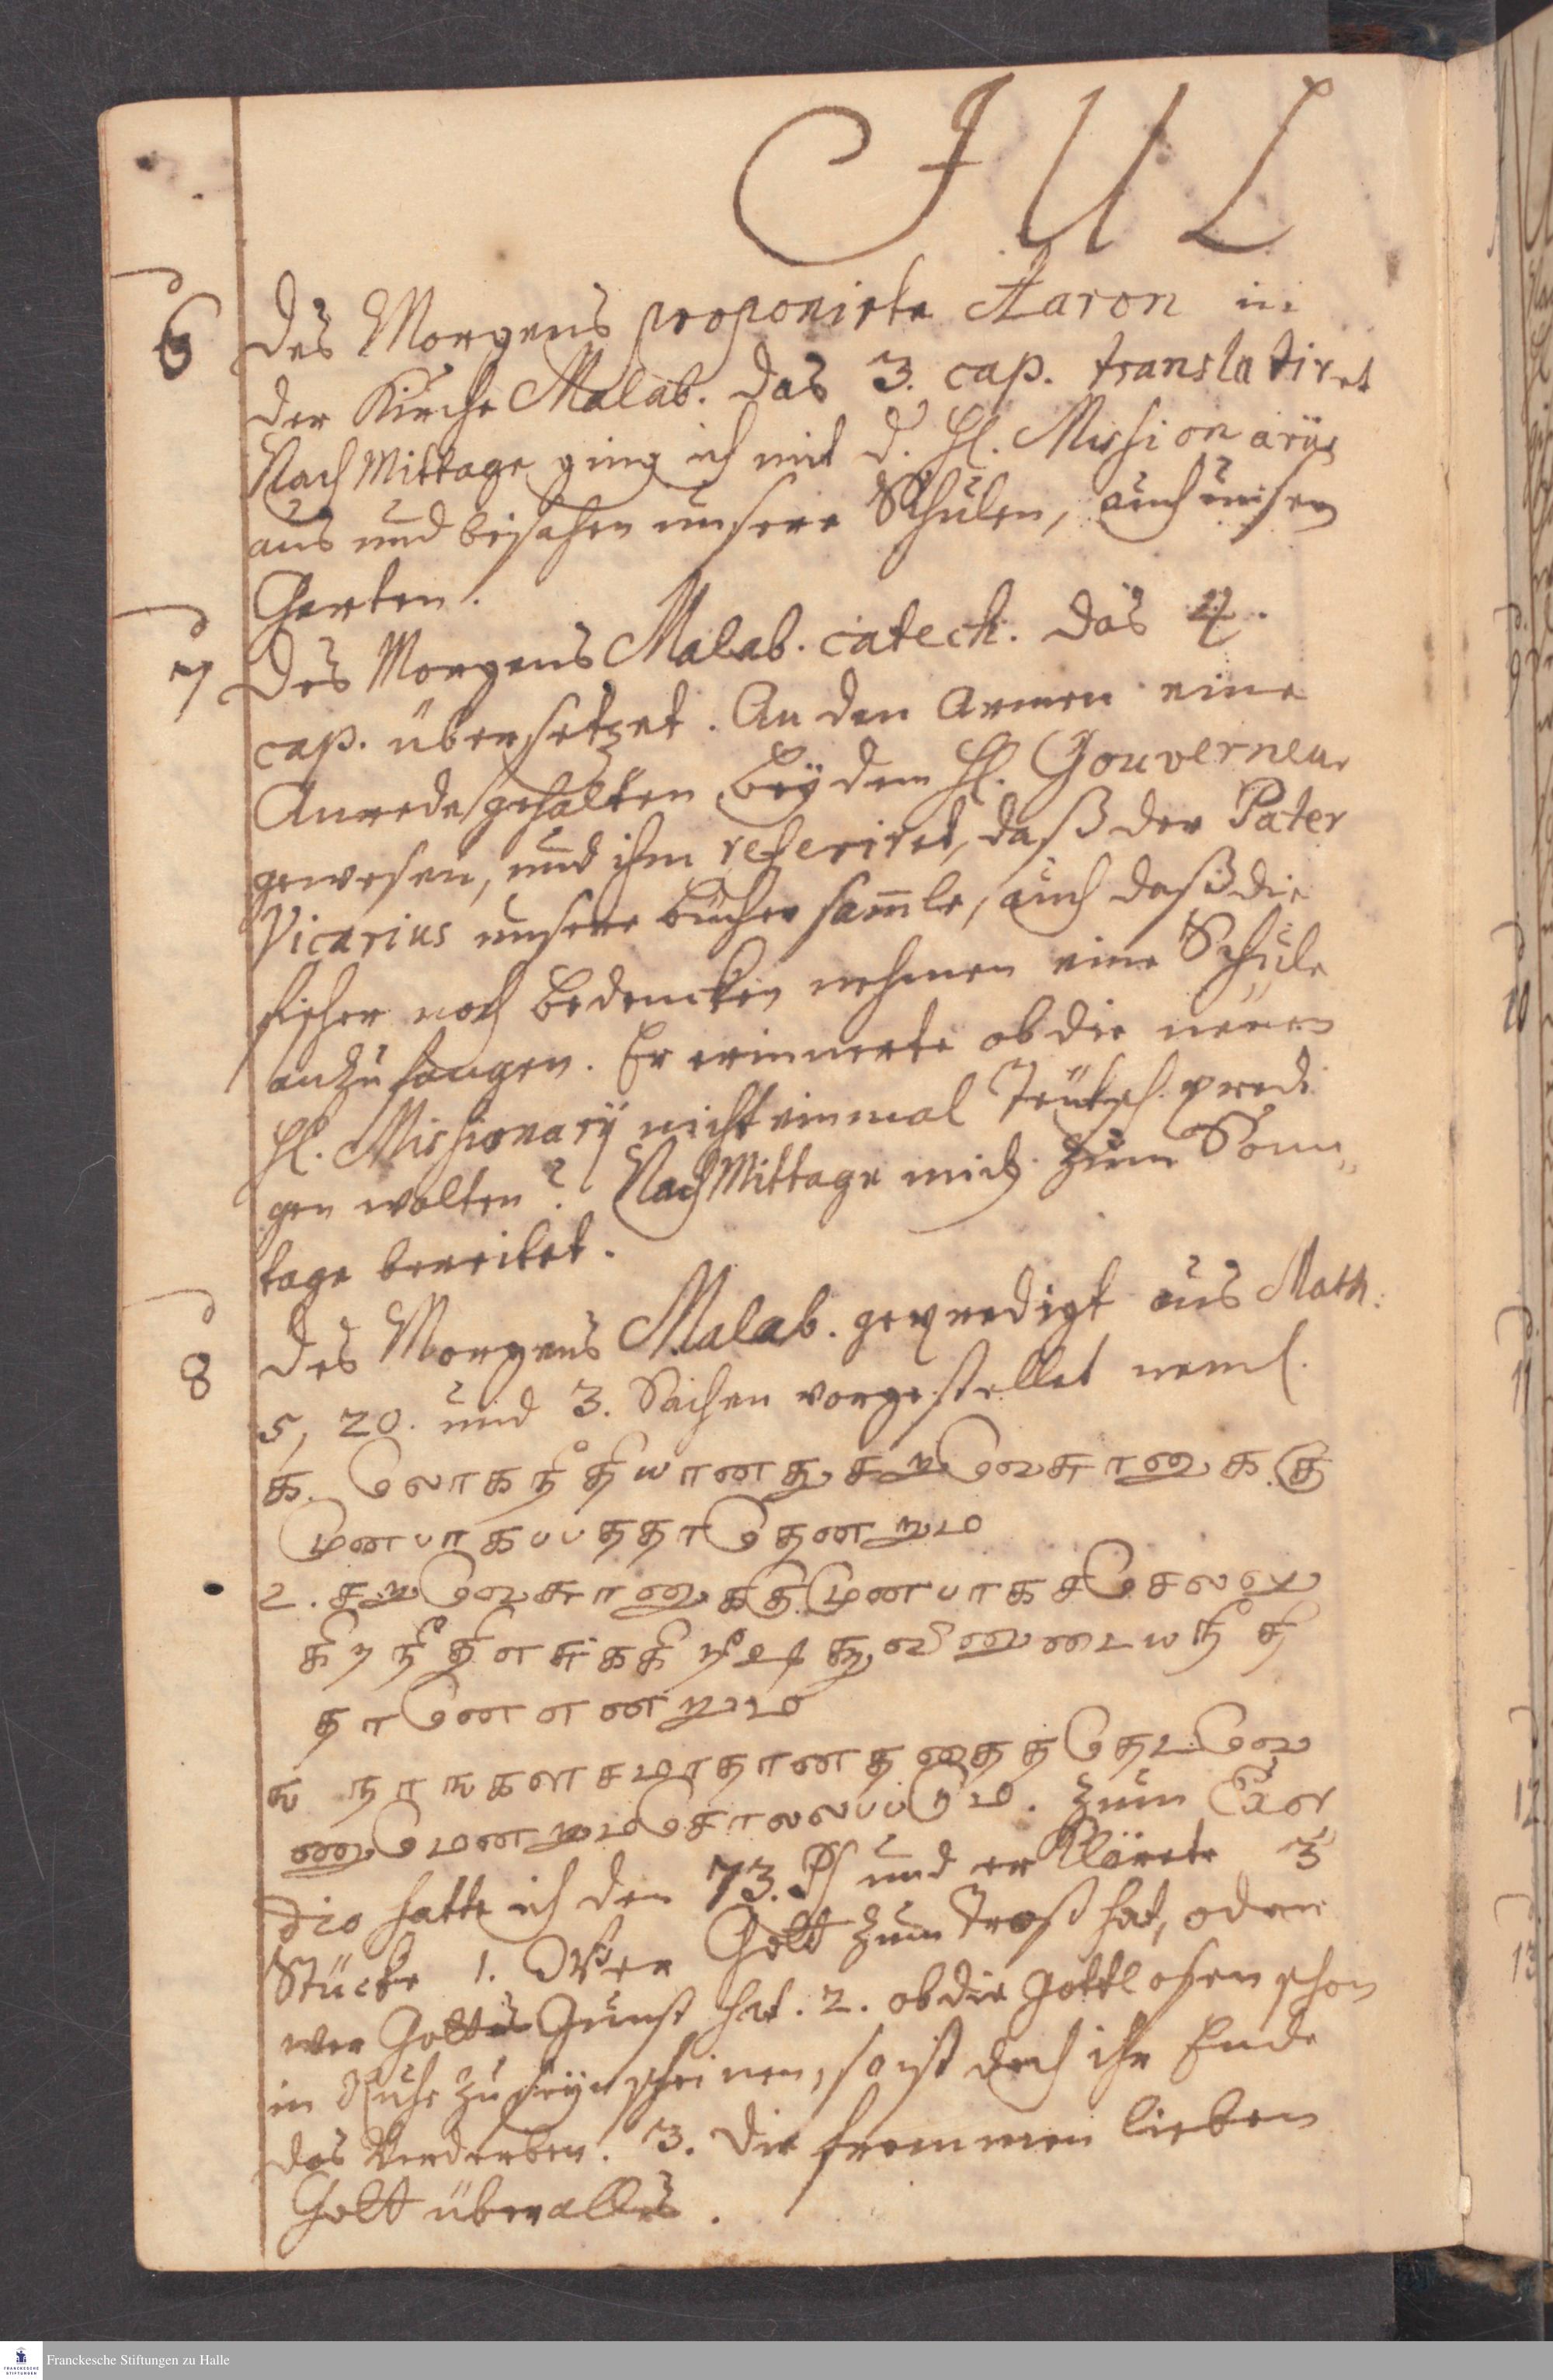 JUL
d. 6 Des Morgens proponirte Aaron in
der Kirche Malab. das 3. cap. translatiret
Nach Mittage ging ich mit d. H. Missionariis
aus und besahen unsere Schulen, auch unsern
Garten.
d. 7 Des Morgens Malab. catech. das 4.
cap. übersetzet. An den Armen eine
Anrede gehalten, bey dem H. Gouverneur
gewesen, und ihm referiret, daß der Pater
Vicarius unsere Bücher sam̅le, auch daß die
Fischer noch Bedencken nehmen eine Schule
anzufangen. Er erinnerte ob die neuen
H. Missionarij nicht einmal Teutsch predi
gen wolten? Nach Mittage mich zum Sonn„
tage bereitet.
d. 8 Des Morgens Malab. geprediget aus Math.
5, 20. und 3. Sachen vorgestellet neml.
க. லோகநீதியானது சறுவேசுரனுககு
முனபாகபபததாதேனறும
2. சறுவேசுரனுககு முனபாகசசெலலு
கிற நீதி எசுககிறீஷ்துவினுடையநீதி
தானே எனறும
௩ நாஙகள சமாதானததைததேடவே
ணுமெனறும சொலலபபடும. Zum Exor
dio hatte ich den 73. Ps und erklärete 3
Stücke 1. Wer Gott zum Trost hat, oder
wer Gottes Gunst hat. 2. ob die Gottlosen schon
in Ruhe zu seyn scheinen, so ist doch ihr Ende
das Verderben. 3. Die frommen lieben
Gott über alles.
Franckesche Stiftungen zu Halle